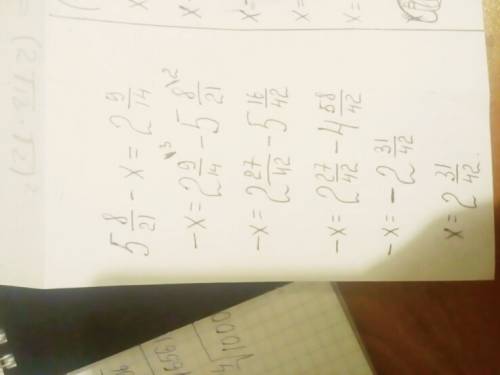 5 8/21 - x = 2 9/14
-x = 2 9/14 \3 - 5 8/21 \2
-x = 2 27/42 - 5 16/42
-x = 2 27/42 - 4 58/42
-x = -2 31/42
x = 2 31/42